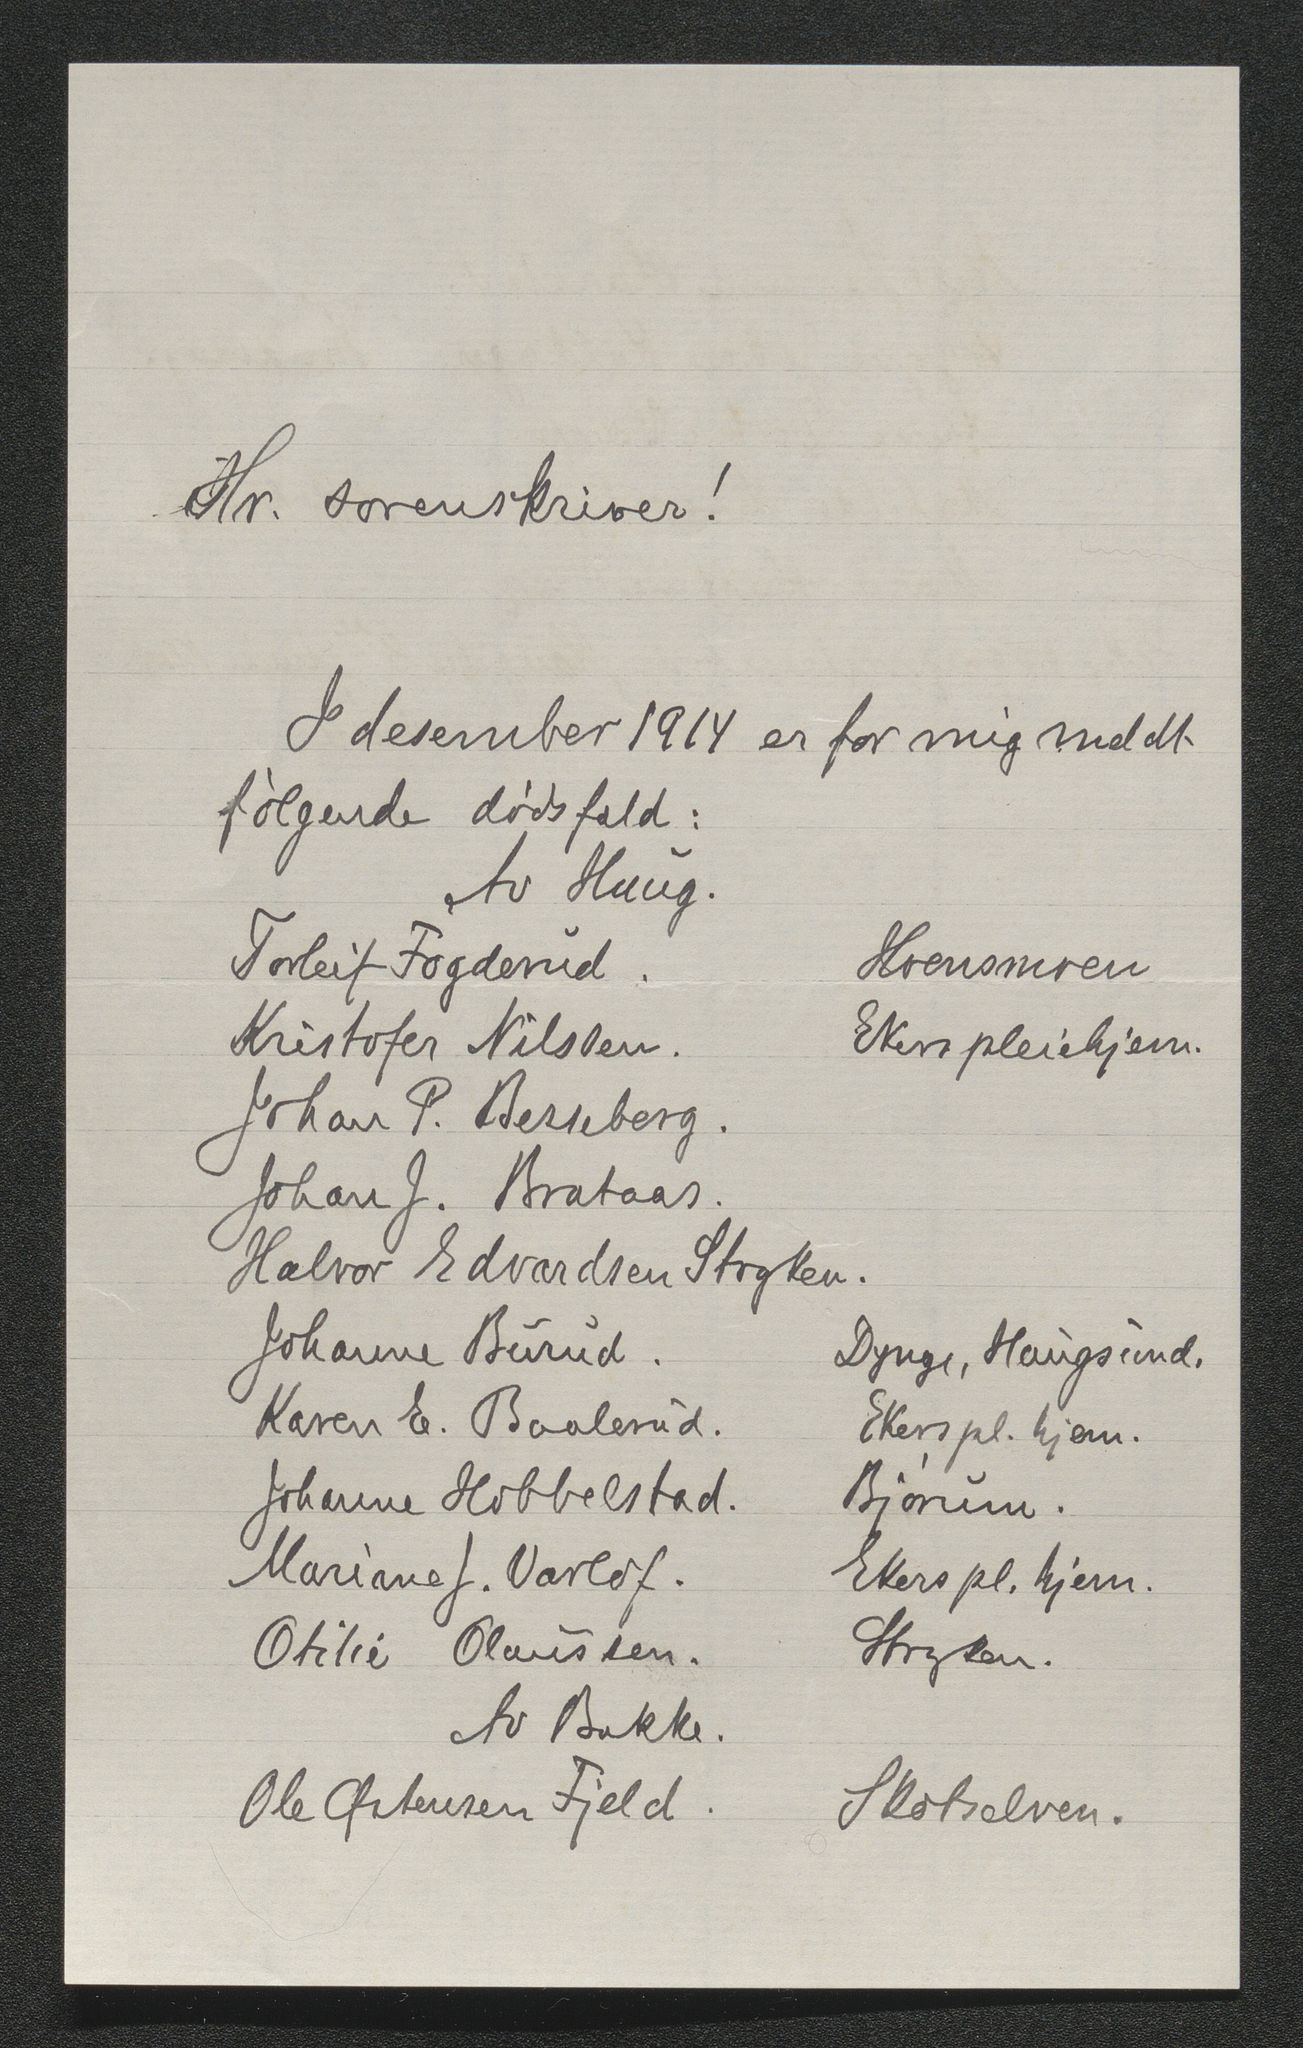 Hr. sorenskriver!
I desember 1914 er for mig meldt
følgende dødsfald:
Av Haug.
Torleif Fogderud. Hoensmoen
Kristofer Nilssen. Ekers pleiehjem.
Johan P. Besseberg.
Johan J. Brataas.
Halvor Edvardsen Stryken.
Johanne Burud. Dynge, Haugsund.
Karen E. Baalerud. Ekers pl. hjem.
Johanne Hobbelstad. Bjørum.
Marinne J. Varlof. Ekers pl. hjem.
Otilie Olaussen. Stryken.
Av Bakke.
Ole Østensen Fjeld. Skotselven.